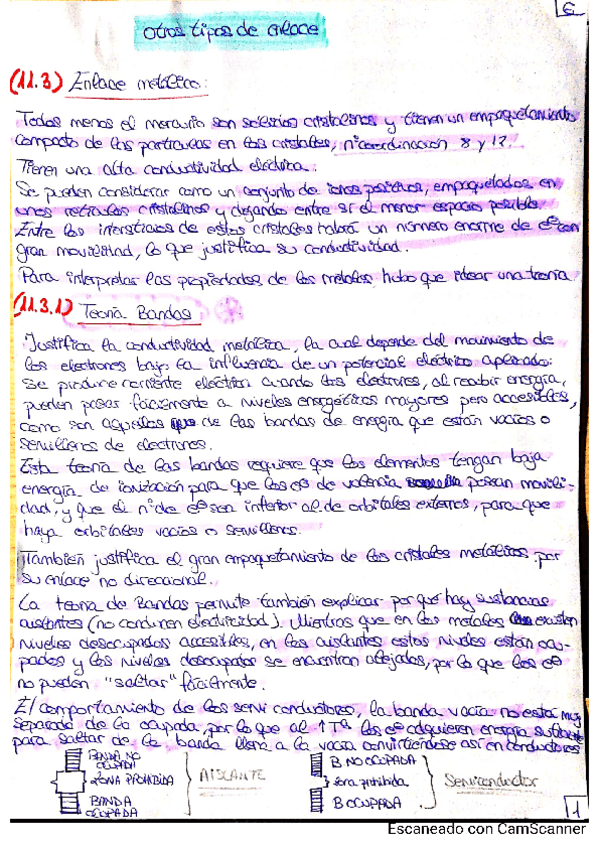 6
Otros tipos de enlace
(11.3) Enlace metálico:
Todos menos el mercurio son sólidos cristalinos y tienen un empaquetamiento
compacto de las partículas en los cristales, nº coordinación 8 y 12.
Tienen una alta conductividad eléctrica.
Se pueden considerar como un conjunto de iones positivos, empaquetados en
unos retículos cristalinos y dejando entre sí el menor espacio posible.
Entre los intersticios de estos cristales habrá un número enorme de e⁻ con
gran movilidad, lo que justifica su conductividad.
Para interpretar las propiedades de los metales, hubo que idear una teoría
(11.3.1) Teoría Bandas
Justifica la conductividad metálica, la cual depende del movimiento de
los electrones bajo la influencia de un potencial eléctrico aplicado:
Se produce corriente eléctrica cuando los electrones, al recibir energía,
pueden pasar fácilmente a niveles energéticos mayores pero accesibles,
como son aquellos de las bandas de energía que están vacíos o
semillenos de electrones.
Esta teoría de las bandas requiere que los elementos tengan baja
energía de ionización para que los e⁻ de valencia posean movili-
dad, y que el nº de e⁻ sea inferior al de orbitales externos, para que
haya orbitales vacíos o semillenos.
También justifica el gran empaquetamiento de los cristales metálicos por
su enlace no direccional.
La teoría de Bandas permite también explicar por qué hay sustancias
aislantes (no conducen electricidad). Mientras que en los metales existen
niveles desocupados accesibles, en los aislantes estos niveles están ocu-
pados y los niveles desocupados se encuentran alejados, por lo que los e⁻
no pueden "saltar" fácilmente.
El comportamiento de los semiconductores, la banda vacía no está muy
separada de la ocupada, por lo que al ↑Tª los e⁻ adquieren energía suficiente
para saltar de la banda llena a la vacía convirtiéndose así en conductores
BANDA NO
OCUPADA
ZONA PROHIBIDA
BANDA
OCUPADA
AISLANTE
B NO OCUPADA
Zona prohibida
B OCUPADA
Semiconductor
1
Escaneado con CamScanner